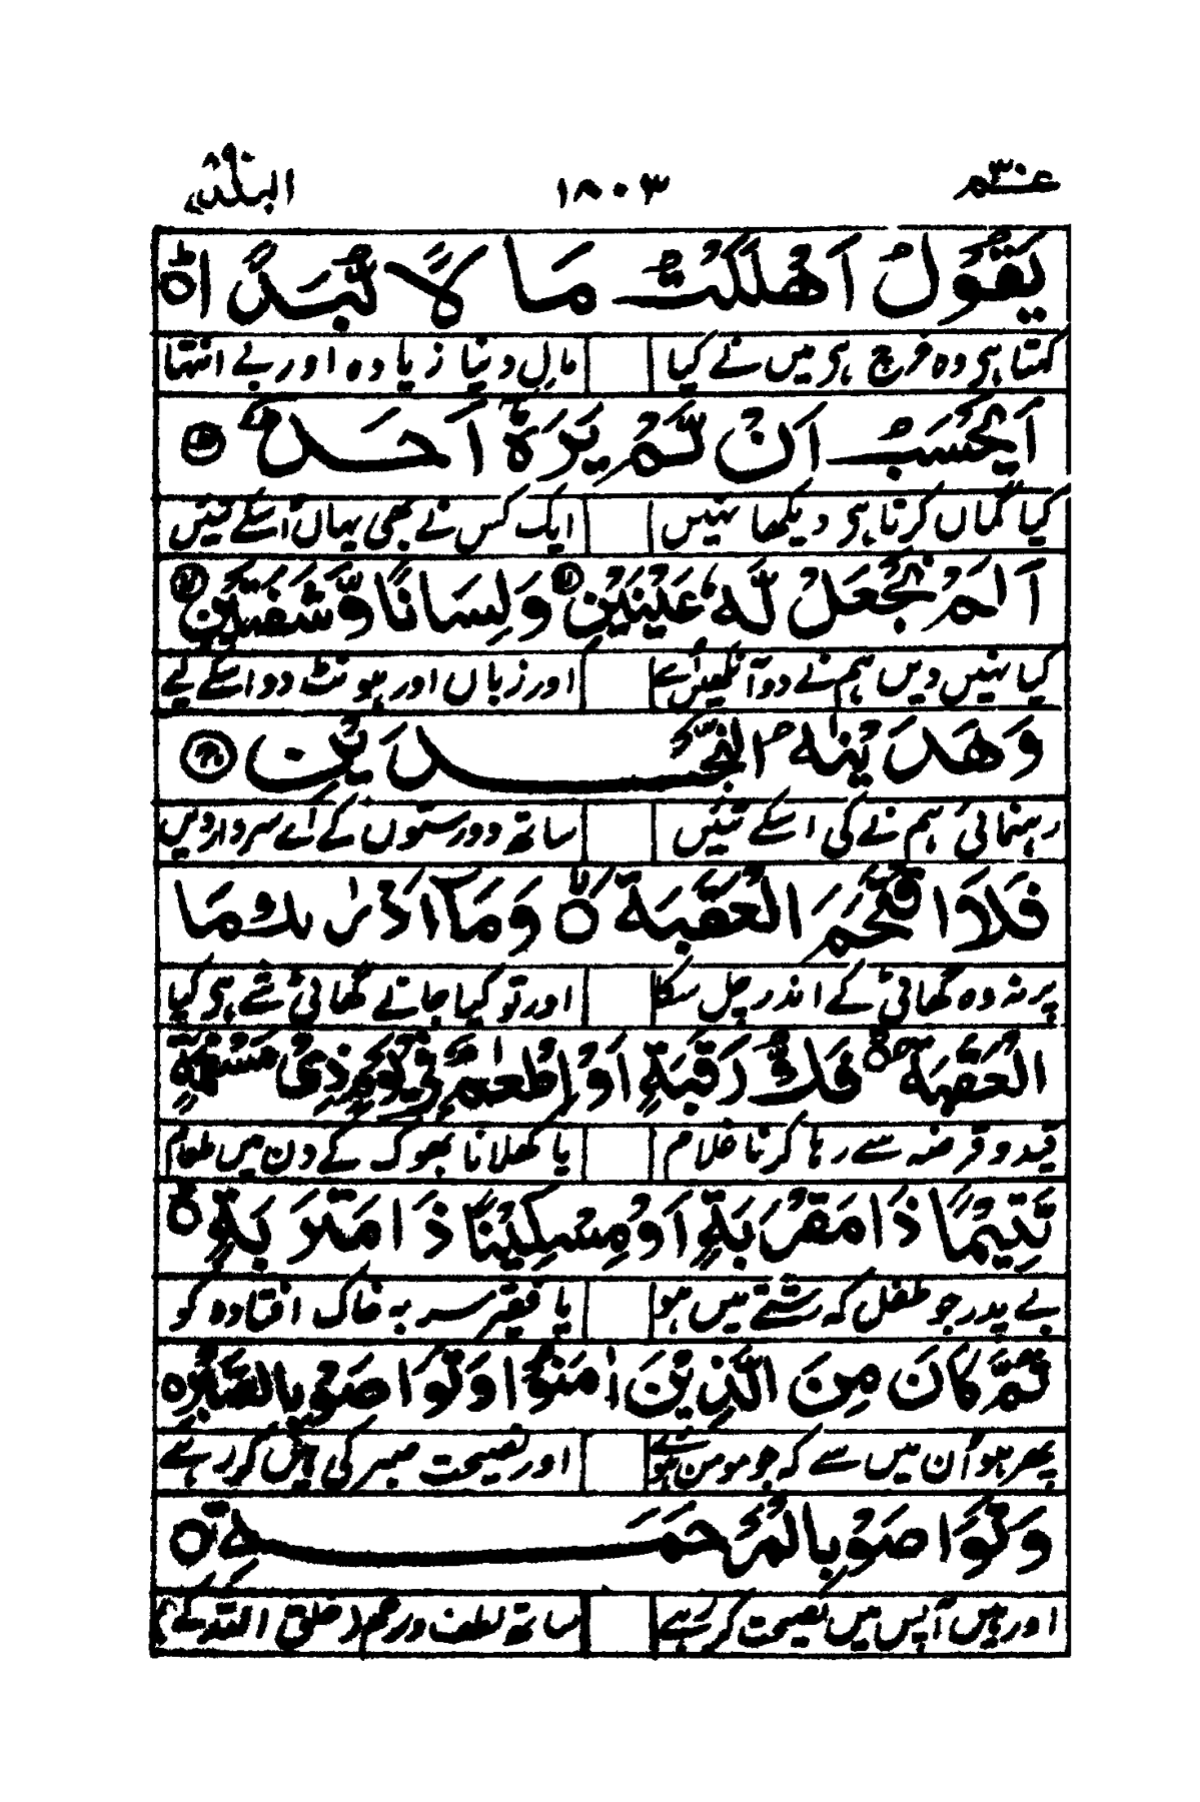 عم ۳۰ ۱۸۰۳ البلد ۹۰
یَقُوْلُ اَهْلَكْتُ مَا لًا لُّبَدًا ؕ
کہتا ہی وہ خرچ ہی میں نے کیا مالِ دنیا زیادہ اور بے انتہا
اَیَحْسَبُ اَنْ لَّمْ یَرَهٗۤ اَحَدٌ
کیا گماں کرتا ہی دیکھا نہیں ایک کس نے بھی یہاں اسکے تئیں
اَلَمْ نَجْعَلْ لَّهٗ عَیْنَیْنِ وَلِسَانًا وَّشَفَتَیْنِ
کیا نہیں دیں ہم نے دو آنکھیں اُسے اور زباں اور ہونٹ دو اسکے لیے
وَهَدَیْنٰهُ النَّجْدَیْنِ
رہنمائی ہم نے کی اسکے تئیں ساتھ دو رستوں کے اے سردار دیں
فَلَا اقْتَحَمَ الْعَقَبَةَ وَمَاۤ اَدْرٰىكَ مَا
پر نہ وہ گھاٹی کے اندر چل سکا اور تو کیا جانے گھاٹی شے ہی کیا
الْعَقَبَةُ فَكُّ رَقَبَةٍ اَوْ اِطْعٰمٌ فِیْ یَوْمٍ ذِیْ مَسْغَبَةٍ
قید و قرضہ سے رہا کرنا غلام یا کھلانا بھوک کے دن میں طعام
یَّتِیْمًا ذَا مَقْرَبَةٍ اَوْ مِسْكِیْنًا ذَا مَتْرَبَةٍ
بے پدر جو طفل کہ رشتے میں ہو یا فقیر سر بہ خاک افتادہ کو
ثُمَّ كَانَ مِنَ الَّذِیْنَ اٰمَنُوْا وَتَوَاصَوْا بِالصَّبْرِ
پھر ہو اُن میں سے کہ جو مومن ہوئے اور نصیحت صبر کی ہیں کر رہے
وَتَوَاصَوْا بِالْمَرْحَمَةِ
اور ہیں آپس میں نصیحت کر رہے ساتھ لطف و رحم (خلق اللہ کے)